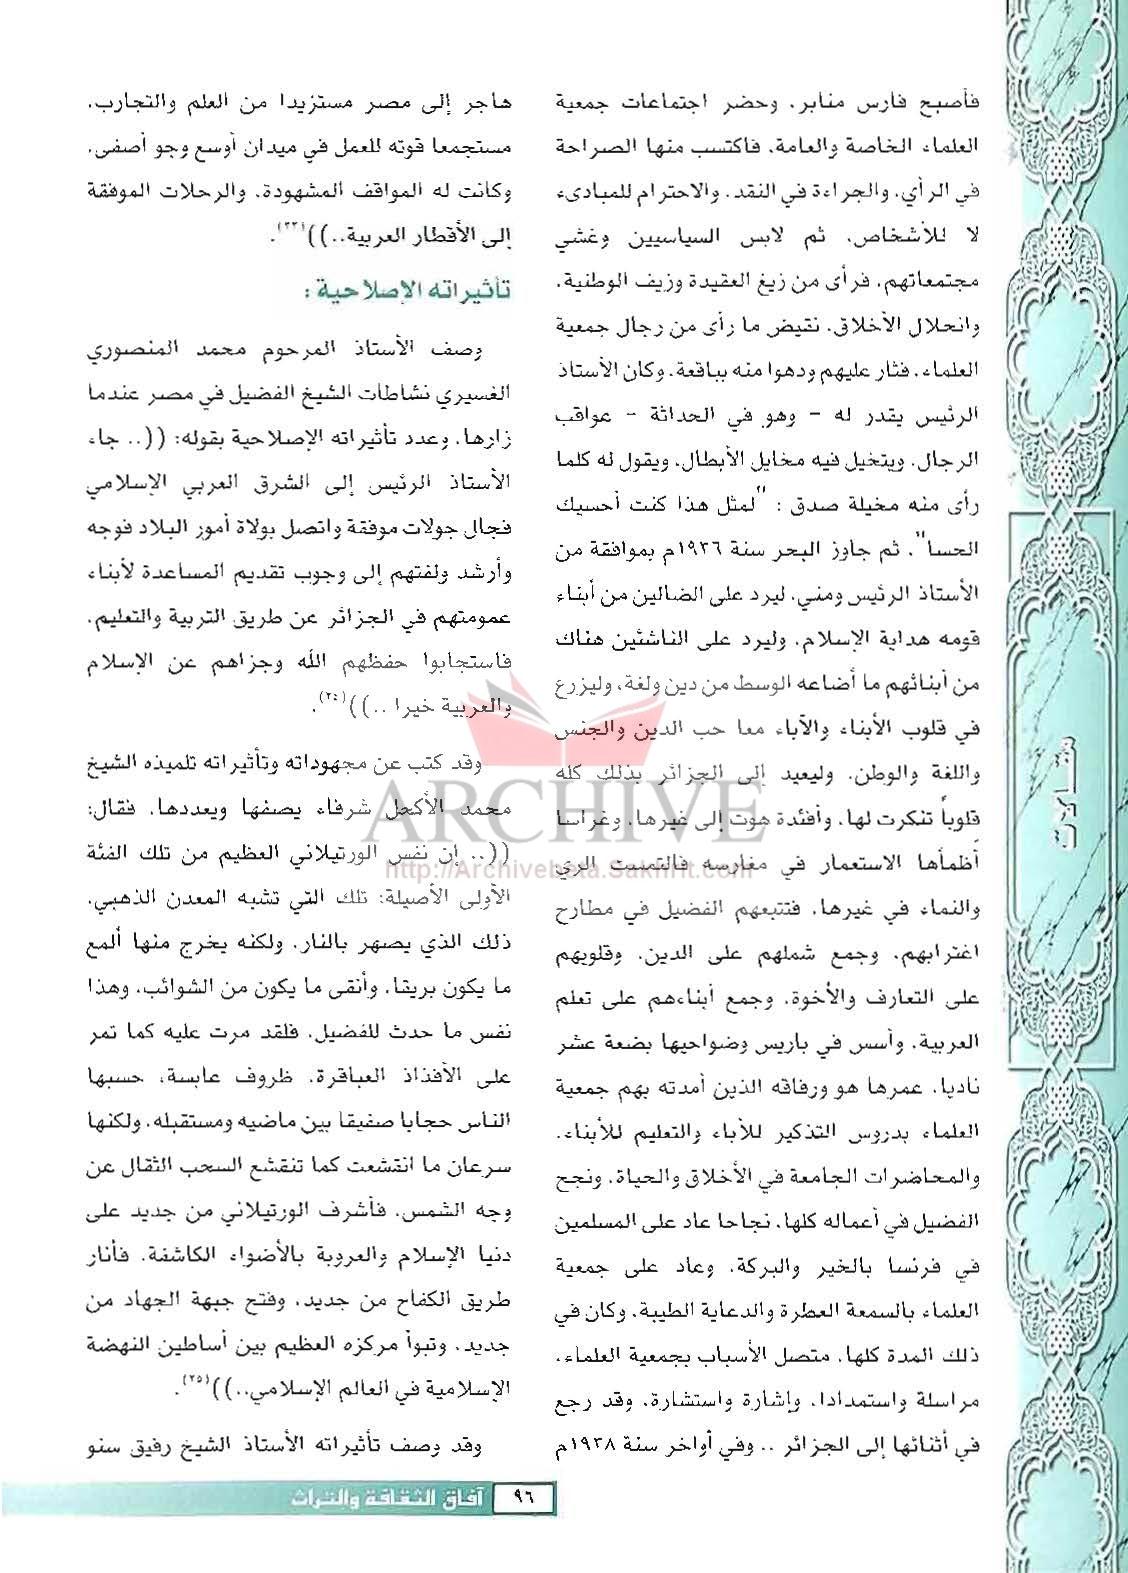 فأصبح فارس منابر، وحضر اجتماعات جمعية
العلماء الخاصة والعامة، فاكتسب منها الصراحة
في الرأي، والجراءة في النقد، والاحترام للمبادىء
لا للأشخاص، ثم لابس السياسيين وغشي
مجتمعاتهم، فرأى من زيغ العقيدة وزيف الوطنية،
وانحلال الأخلاق، نقيض ما رأى من رجال جمعية
العلماء، فثار عليهم ودهوا منه بباقعة، وكان الأستاذ
الرئيس يقدر له - وهو في الحداثة - عواقب
الرجال، ويتخيل فيه مخايل الأبطال، ويقول له كلما
رأى منه مخيلة صدق : "لمثل هذا كنت أحسيك
الحسا"، ثم جاوز البحر سنة ١٩٣٦م بموافقة من
الأستاذ الرئيس ومني، ليرد على الضالين من أبناء
قومه هداية الإسلام، وليرد على الناشئين هناك
من أبنائهم ما أضاعه الوسط من دين ولغة، وليزرع
في قلوب الأبناء والآباء معا حب الدين والجنس
واللغة والوطن، وليعيد إلى الجزائر بذلك كله
قلوباً تنكرت لها، وأفئدة هوت إلى غيرها، وغراسا
أظمأها الاستعمار في مغارسه فالتمست الري
والنماء في غيرها، فتتبعهم الفضيل في مطارح
اغترابهم، وجمع شملهم على الدين، وقلوبهم
على التعارف والأخوة، وجمع أبناءهم على تعلم
العربية، وأسس في باريس وضواحيها بضعة عشر
ناديا، عمرها هو ورفاقه الذين أمدته بهم جمعية
العلماء بدروس التذكير للآباء والتعليم للأبناء،
والمحاضرات الجامعة في الأخلاق والحياة، ونجح
الفضيل في أعماله كلها، نجاحا عاد على المسلمين
في فرنسا بالخير والبركة، وعاد على جمعية
العلماء بالسمعة العطرة والدعاية الطيبة، وكان في
ذلك المدة كلها، متصل الأسباب بجمعية العلماء،
مراسلة واستمدادا، وإشارة واستشارة، وقد رجع
في أثنائها إلى الجزائر .. وفي أواخر سنة ١٩٣٨م
هاجر إلى مصر مستزيدا من العلم والتجارب،
مستجمعا قوته للعمل في ميدان أوسع وجو أصفى،
وكانت له المواقف المشهودة، والرحلات الموفقة
إلى الأقطار العربية..))(٣٣).
تأثيراته الإصلاحية :
وصف الأستاذ المرحوم محمد المنصوري
الغسيري نشاطات الشيخ الفضيل في مصر عندما
زارها، وعدد تأثيراته الإصلاحية بقوله: ((.. جاء
الأستاذ الرئيس إلى الشرق العربي الإسلامي
فجال جولات موفقة واتصل بولاة أمور البلاد فوجه
وأرشد ولفتهم إلى وجوب تقديم المساعدة لأبناء
عمومتهم في الجزائر عن طريق التربية والتعليم،
فاستجابوا حفظهم الله وجزاهم عن الإسلام
والعربية خيرا ..))(٣٤).
وقد كتب عن مجهوداته وتأثيراته تلميذه الشيخ
محمد الأكحل شرفاء يصفها ويعددها، فقال:
((.. إن نفس الورتيلاني العظيم من تلك الفئة
الأولى الأصيلة: تلك التي تشبه المعدن الذهبي،
ذلك الذي يصهر بالنار، ولكنه يخرج منها ألمع
ما يكون بريقا، وأنقى ما يكون من الشوائب، وهذا
نفس ما حدث للفضيل، فلقد مرت عليه كما تمر
على الأفذاذ العباقرة، ظروف عابسة، حسبها
الناس حجابا صفيقا بين ماضيه ومستقبله، ولكنها
سرعان ما انقشعت كما تنقشع السحب الثقال عن
وجه الشمس، فأشرف الورتيلاني من جديد على
دنيا الإسلام والعروبة بالأضواء الكاشفة، فأنار
طريق الكفاح من جديد، وفتح جبهة الجهاد من
جديد، وتبوأ مركزه العظيم بين أساطين النهضة
الإسلامية في العالم الإسلامي..))(٣٥).
وقد وصف تأثيراته الأستاذ الشيخ رفيق سنو
مقالات
ARCHIVE
http://Archivebeta.Sakhrit.com
٩٦ آفاق الثقافة والتراث